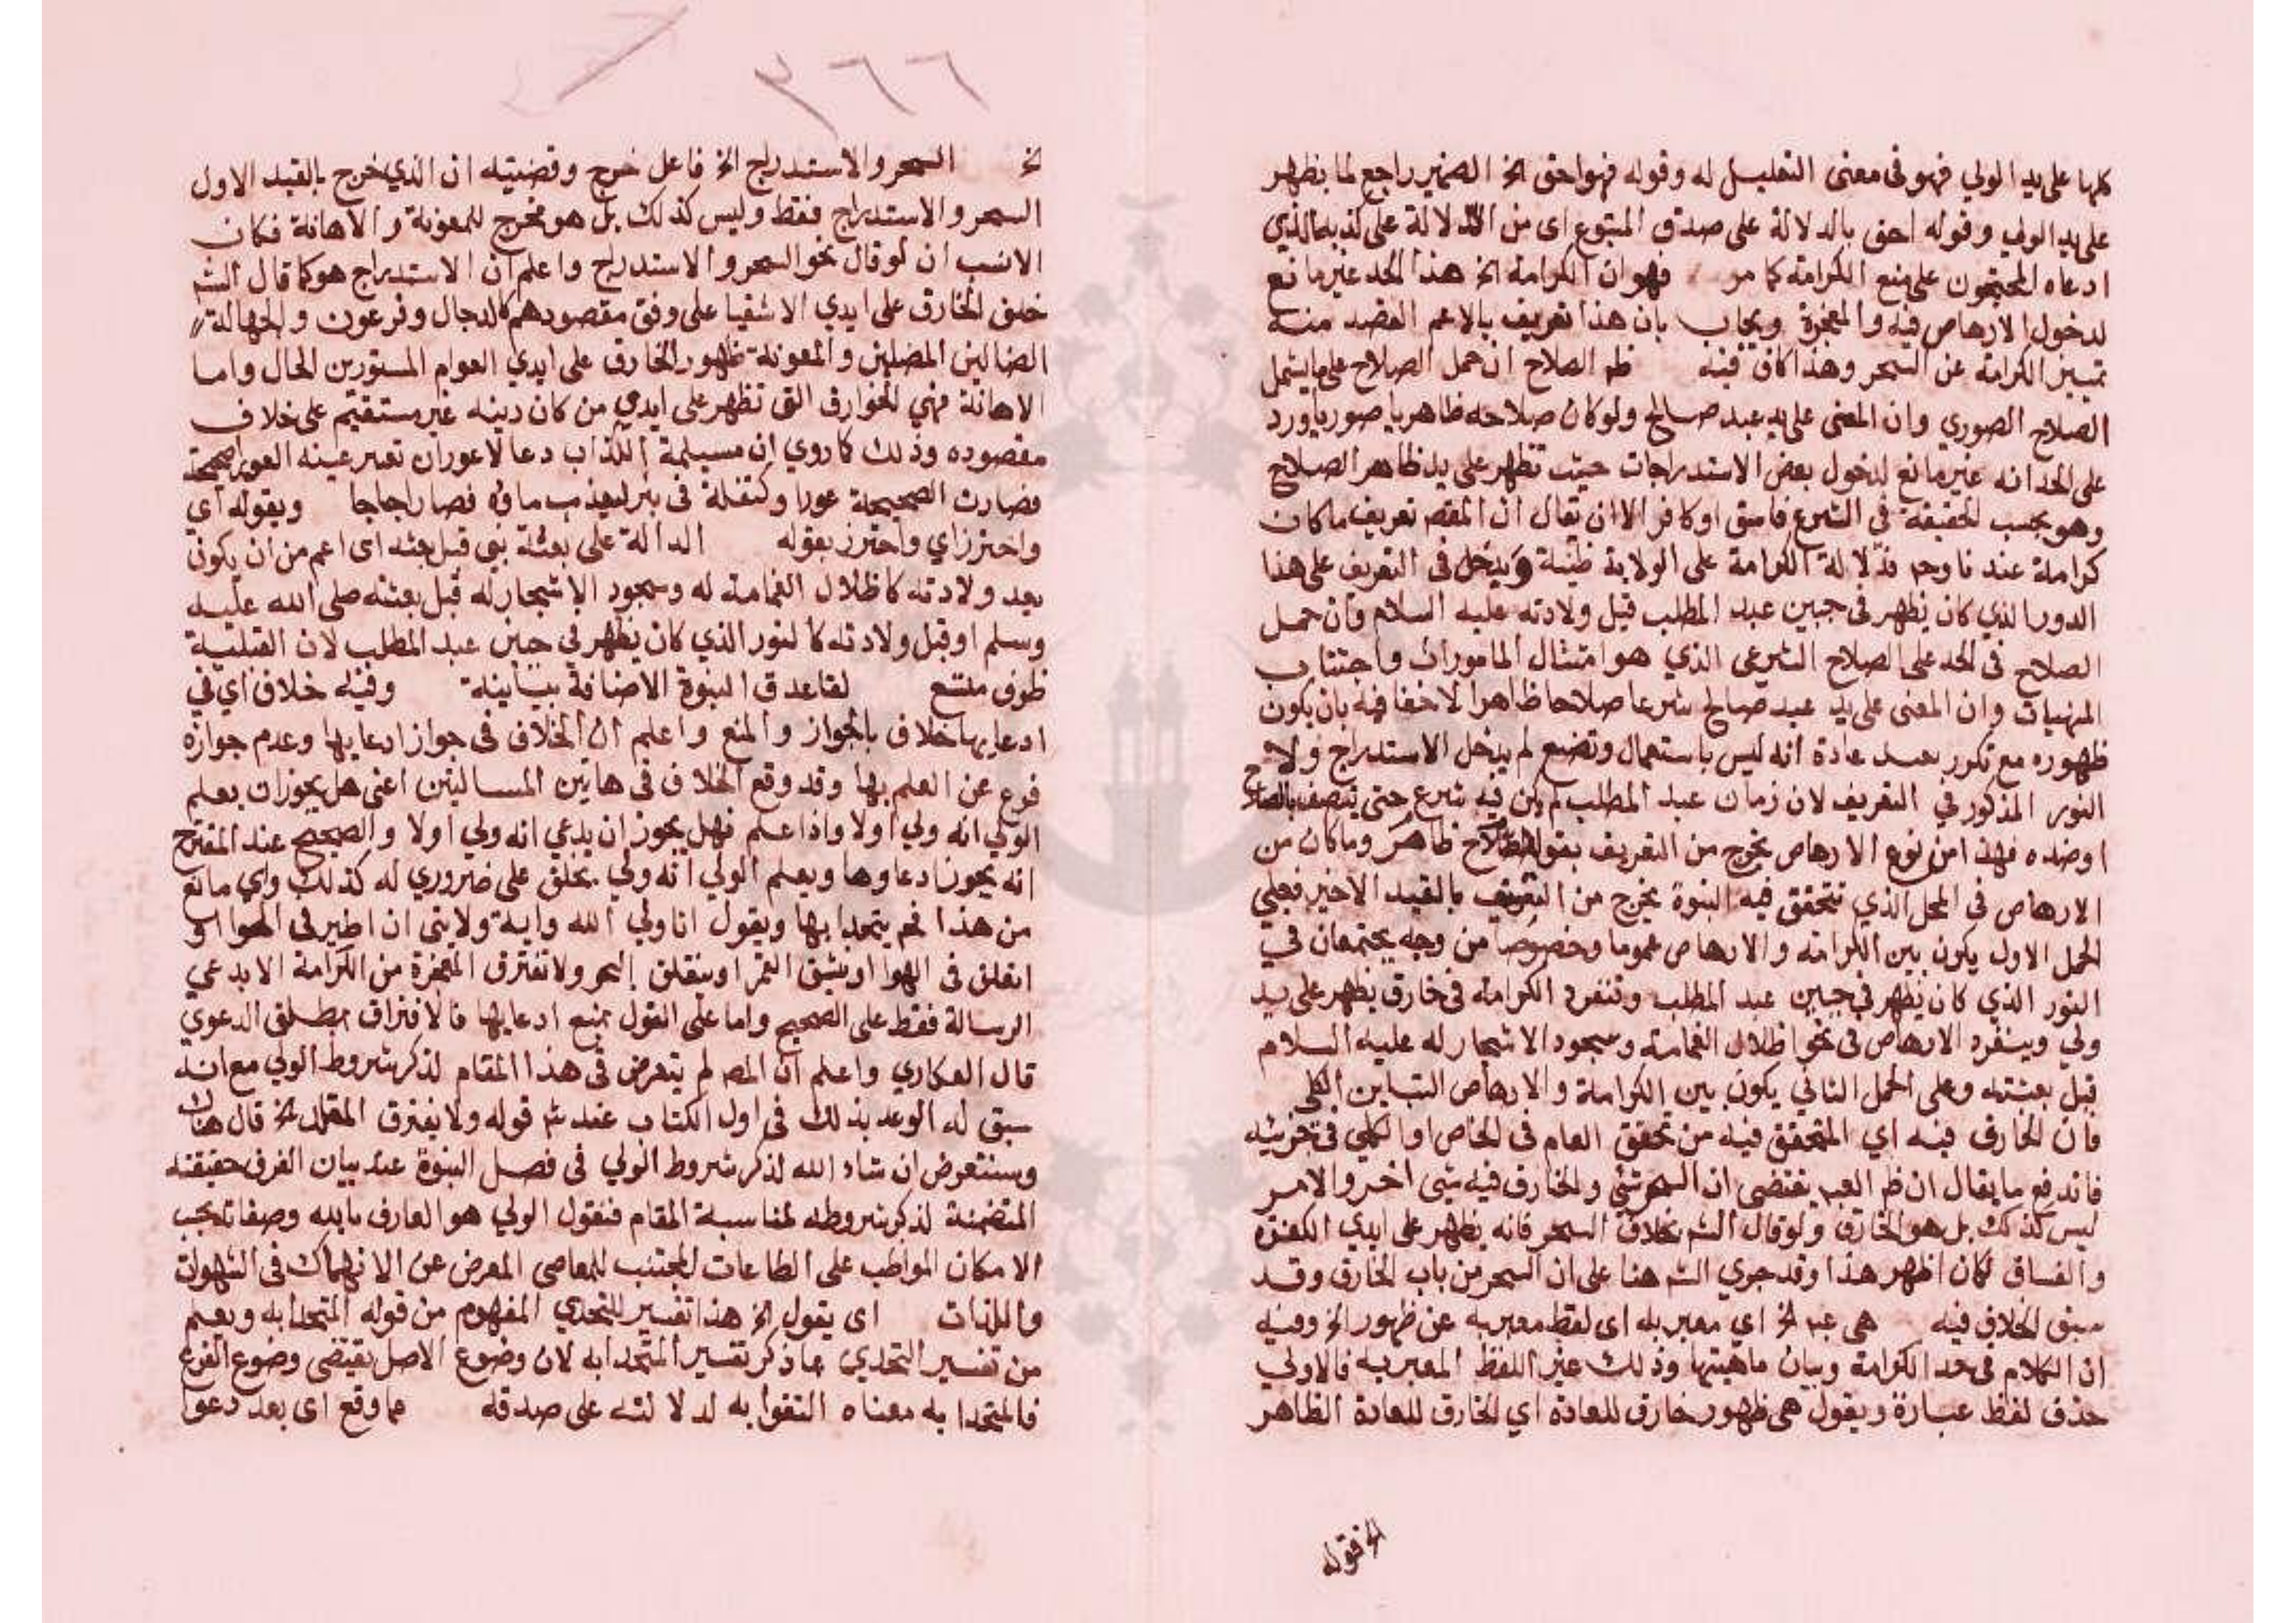 كلها على يد الولي فهو فى معنى التعليل له وقوله فهو احق الخ الضمير راجع لما يظهر
على يد الولي وقوله احق بالدلالة على صدق المتبوع اى من الدلالة على كذبه الذي
ادعاه المحتجون على منع الكرامة كما مر فهو ان الكرامة الخ هذا الحد غير مانع
لدخول الارهاص فيه والمعجزة ويجاب بان هذا تعريف بالاعم القصد منه
تمييز الكرامة عن السحر وهذا كاف فيه ظه الصلاح ان حمل الصلاح على ما يشمل
الصلاح الصوري وان المعنى على يد عبد صالح ولو كان صلاحه ظاهريا صوريا ورد
على الحد انه غير مانع لدخول بعض الاستدراجات حيث تظهر على يد ظاهر الصلاح
وهو بحسب الحقيقة فى الشرع فاسق او كافر الا ان يقال ان المقصـ تعريف ما كان
كرامة عندنا وحـ فدلالة الكرامة على الولاية ظنية ويدخل فى التعريف على هذا
النور الذي كان يظهر فى جبين عبد المطلب قبل ولادته عليه السلام وان حمل
الصلاح فى الحد على الصلاح الشرعى الذي هو امتثال المامورات واجتناب
المنهيات وان المعنى على يد عبد صالح شرعا صلاحا ظاهرا لا خفا فيه بان يكون
ظهوره مع تكرر بعد عادة انه ليس باستعمال وتصنع لم يدخل الاستدراج ولا
النور المذكور في التعريف لان زمان عبد المطلب لم يكن فيه شرع حتى يتصف بالصلاح
او ضده فهذا من نوع الارهاص يخرج من التعريف بقوله الصلاح ظاهر وما كان من
الارهاص فى المحل الذي تتحقق فيه النبوة يخرج من التعريف بالقيد الاخير فعلى
الحمل الاول يكون بين الكرامة والارهاص عموما وخصوصا من وجه يجتمعان في
النور الذي كان يظهر في جبين عبد المطلب وتنفرد الكرامة فى خارق يظهر على يد
ولي وينفرد الارهاص فى نحو اظلال الغمامة وسجود الاشجار له عليه السلام
قبل بعثته وعلى الحمل الثاني يكون بين الكرامة والارهاص التباين الكلي
فان الخارق فيه اي المتحقق فيه من تحقق العام فى الخاص او الكلي فى جزئيه
فاندفع ما يقال ان ظه العبـ يقتضى ان السحر شئ والخارق فيه شى اخر والامر
ليس كذلك بل هو الخارق ولو قال الشـ بخلاف السحر فانه يظهر على ايدي الكفرة
والفساق لكان اظهر هذا وقد جري الشـ هنا على ان السحر من باب الخارق وقد
سبق الخلاف فيه هى عبـ الخ اي معبر به اى لفظ معبر به عن ظهور الخ وفيه
ان الكلام فى حد الكرامة وبيان ماهيتها وذلك غير اللفظ المعبر به فالاولي
حذف لفظ عبارة ويقول هى ظهور خارق للعادة اي الخارق للعادة الظاهر
فقوله
٣٦٦
الخ السحر والاستدراج الخ فاعل خرج وقضيته ان الذي خرج بالقيد الاول
السحر والاستدراج فقط وليس كذلك بل هو مخرج للمعونة والاهانة فكان
الانسب ان لو قال نحو السحر والاستدراج واعلم ان الاستدراج هو كما قال الشـ
خلق الخارق على ايدي الاشقيا على وفق مقصودهم كالدجال وفرعون والجهالة
الضالين المضلين والمعونة ظهور الخارق على ايدي العوام المستورين الحال واما
الاهانة فهي الخوارق التى تظهر على ايدي من كان دينه غير مستقيم على خلاف
مقصوده وذلك كما روي ان مسيلمة الكذاب دعا لاعور ان تصير عينه العورا صحيحة
فصارت الصحيحة عورا وكتفلة فى بئر ليعذب ماؤه فصار اجاجا وبقوله اي
واحترز اي واحترز بقوله الدالة على بعثة نبي قبل بعثه اى اعم من ان يكون
بعد ولادته كاظلال الغمامة له وسجود الاشجار له قبل بعثته صلى الله عليه
وسلم او قبل ولادته كالنور الذي كان يظهر في جبين عبد المطلب لان القبلية
ظرف متسع لقاعدة النبوة الاضافة بيانية وفيه خلاف اي في
ادعايها خلاف بالجواز والمنع واعلم ان الخلاف فى جواز ادعايها وعدم جوازه
فرع عن العلم بها وقد وقع الخلاف فى هاتين المسالتين اعنى هل يجوز ان يعلم
الولي انه ولي اولا واذا علم فهل يجوز ان يدعي انه ولي اولا والصحيح عند المقترح
انه يجوز ادعاوها ويعلم الولي انه ولي بخلق علم ضروري له كذلك واي مانع
من هذا نعم يتحدا بها ويقول انا ولي الله واية ولايتى ان اطير فى الهوا او
انفلق فى الهوا او ينشق القمر او ينفلق البحر ولا تفترق المعجزة من الكرامة الا بدعي
الرسالة فقط على الصحيح واما على القول بمنع ادعايها فالافتراق بمطلق الدعوي
قال العكاري واعلم ان المصـ لم يتعرض فى هذا المقام لذكر شروط الولي مع انه
سبق له الوعد بذلك فى اول الكتاب عند شـ قوله ولا يفترق المقلد الخ قال هناك
وسنتعرض ان شاء الله لذكر شروط الولي فى فصل النبوة عند بيان الفرق حقيقته
المتضمنة لذكر شروطه لمناسبة المقام فنقول الولي هو العارف بالله وصفاته بحسب
الامكان المواظب على الطاعات المجتنب للمعاصى المعرض عن الانهماك فى الشهوات
واللذات اى يقول الخ هذا تفسير للتحدي المفهوم من قوله المتحدا به ويعلم
من تفسير التحدي بما ذكر تفسير المتحدا به لان وضوع الاصل يقتضى وضوع الفرع
فالمتحدا به معناه التفوا به لدلالته على صدقه مما وقع اى بعد دعوا